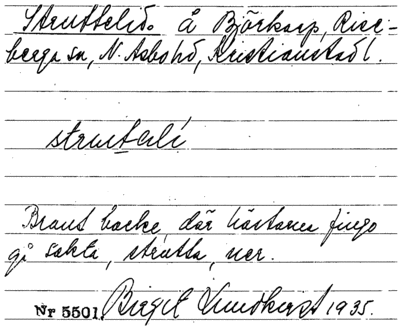 Struttelid. å Björkarp, Rise-
berga sn, N. Åsbo hd, Kristianstad l.
strutalí
Brant backe, där hästarna fingo
gå sakta, strutta, ner.
Nr 5501. Birgit Lundkvist 1935.